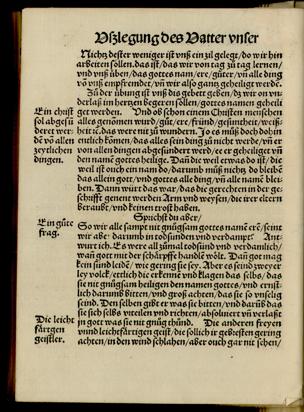 Uszlegung des Vatter unser
Nichtz dester weniger ist unß ein zil gelegt/do wir hin
arbeiten sollen.das ist/das wir von tag zu tag lernen/
und unß üben/das gottes nam/ere/güter/uñ alle ding
vō unß empfremdet/uñ wir also gantz geheiligt werdē.
Zů der übung ist unß diß gebett geben/dz wir on un-
derlaß im hertzen begeren sollen/gottes namen geheilt
Ein christ
sol abgesü
deret wer-
dē vō allen
zeytlichen
dingen.
get werden. Und ob schon einem Christen menschen
alles genomen wurd/gůt/ere/fründ/gesundheit/weiß-
heit ic.das were nit zu wundern. Jo es můß doch dohin
entlich kōmen/das alles sein ding zů nicht werde/uñ er
von allen dingen abgesündert werd/ee er geheiliget uñ
den namē gottes heilige. Dañ die weil etwas do ist/die
weil ist ouch ein nam do/darumb můß nichtz do bleibē
das allein got/und gottes alle ding/uñ alle namē blei-
ben. Dann würt das war/das die gerechten in der ge-
schrifft genent werden Arm und weysen/die irer eltern
beraubt/und keinen trost haben.
Sprichst du aber/
Ein gůte
frag.
So wir alle sampt nit gnůgsam gottes namē erē/seint
wir abe darumb in todsünden und verdampt? Ant-
wurt ich. Es were all zůmal todsünd und verdamlich/
wañ gott mit der schärpffe handlē wölt. Dañ got mag
kein sünd leidē/wie gering sie sey. Aber es seind zweyer
ley volck/etlich die erkennē und klagen das selbs/das
sie nit gnůgsam heiligen den namen gottes/und ernst-
lich darumb bitten/und groß achten/das sie so unselig
sind. Den selben gibt er was sie bitten/und darūb das
sie sich selbs urteilen und richten/absolviert uñ verlaßt
Die leicht
färtgen
geistler.
in gott was sie nit gnůg thůnd. Die anderen freyen
und leichtfärtigen geist/die sollich ir gebresten gering
achten/in den wind schlahen/aber ouch gar nit sehen/